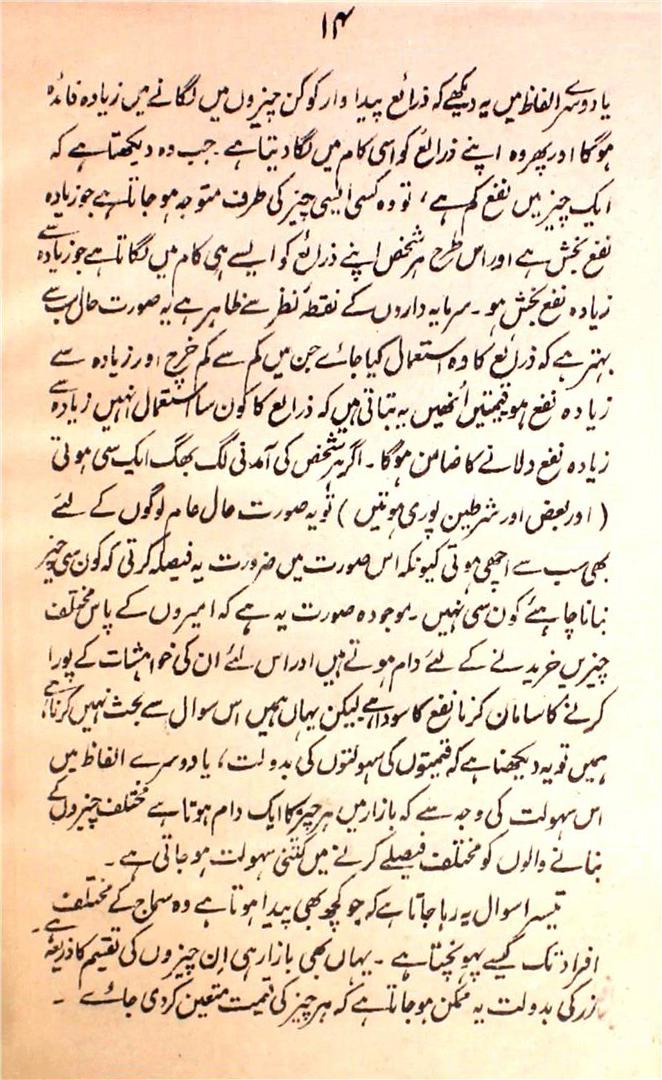 ۱۴
یا دوسرے الفاظ میں یہ دیکھے کہ ذرائع پیداوار کو کن چیزوں میں لگانے میں زیادہ فائدہ
ہوگا اور پھر وہ اپنے ذرائع کو اسی کام میں لگا دیتا ہے۔ جب وہ دیکھتا ہے کہ
ایک چیز میں نفع کم ہے، تو وہ کسی ایسی چیز کی طرف متوجہ ہو جاتا ہے جو زیادہ
نفع بخش ہے اور اس طرح ہر شخص اپنے ذرائع کو ایسے ہی کام میں لگاتا ہے جو زیادہ سے
زیادہ نفع بخش ہو۔ سرمایہ داروں کے نقطۂ نظر سے ظاہر ہے یہ صورت حال سب سے
بہتر ہے کہ ذرائع کا وہ استعمال کیا جائے جن میں کم سے کم خرچ اور زیادہ سے
زیادہ نفع ہو قیمتیں اُنھیں یہ بتاتی ہیں کہ ذرائع کا کون سا استعمال انہیں زیادہ سے
زیادہ نفع دلانے کا ضامن ہوگا۔ اگر ہر شخص کی آمدنی لگ بھگ ایک سی ہوتی
(اور بعض اور شرطین پوری ہوتیں) تو یہ صورت حال عام لوگوں کے لئے
بھی سب سے اچھی ہوتی کیونکہ اس صورت میں ضرورت یہ فیصلہ کرتی کہ کون سی چیز
بنانا چاہئے کون سی نہیں۔ موجودہ صورت یہ ہے کہ امیروں کے پاس مختلف
چیزیں خریدنے کے لئے دام ہوتے ہیں اور اس لئے ان کی خواہشات کے پورا
کرنے کا سامان کرنا نفع کا سودا ہے لیکن یہاں ہمیں اس سوال سے بحث نہیں کرنا ہے،
ہمیں تو یہ دیکھنا ہے کہ قیمتوں کی سہولتوں کی بدولت، یا دوسرے الفاظ میں
اس سہولت کی وجہ سے کہ بازار میں ہر چیز کا ایک دام ہوتا ہے مختلف چیزوں کے
بنانے والوں کو مختلف فیصلے کرنے میں کتنی سہولت ہو جاتی ہے۔
تیسرا سوال یہ رہا جاتا ہے کہ جو کچھ بھی پیدا ہوتا ہے وہ سماج کے مختلف
افراد تک کیسے پہونچتا ہے۔ یہاں بھی بازار ہی ان چیزوں کی تقسیم کا ذریعہ ہے۔
زر کی بدولت یہ ممکن ہو جاتا ہے کہ ہر چیز کی قیمت متعین کر دی جائے۔